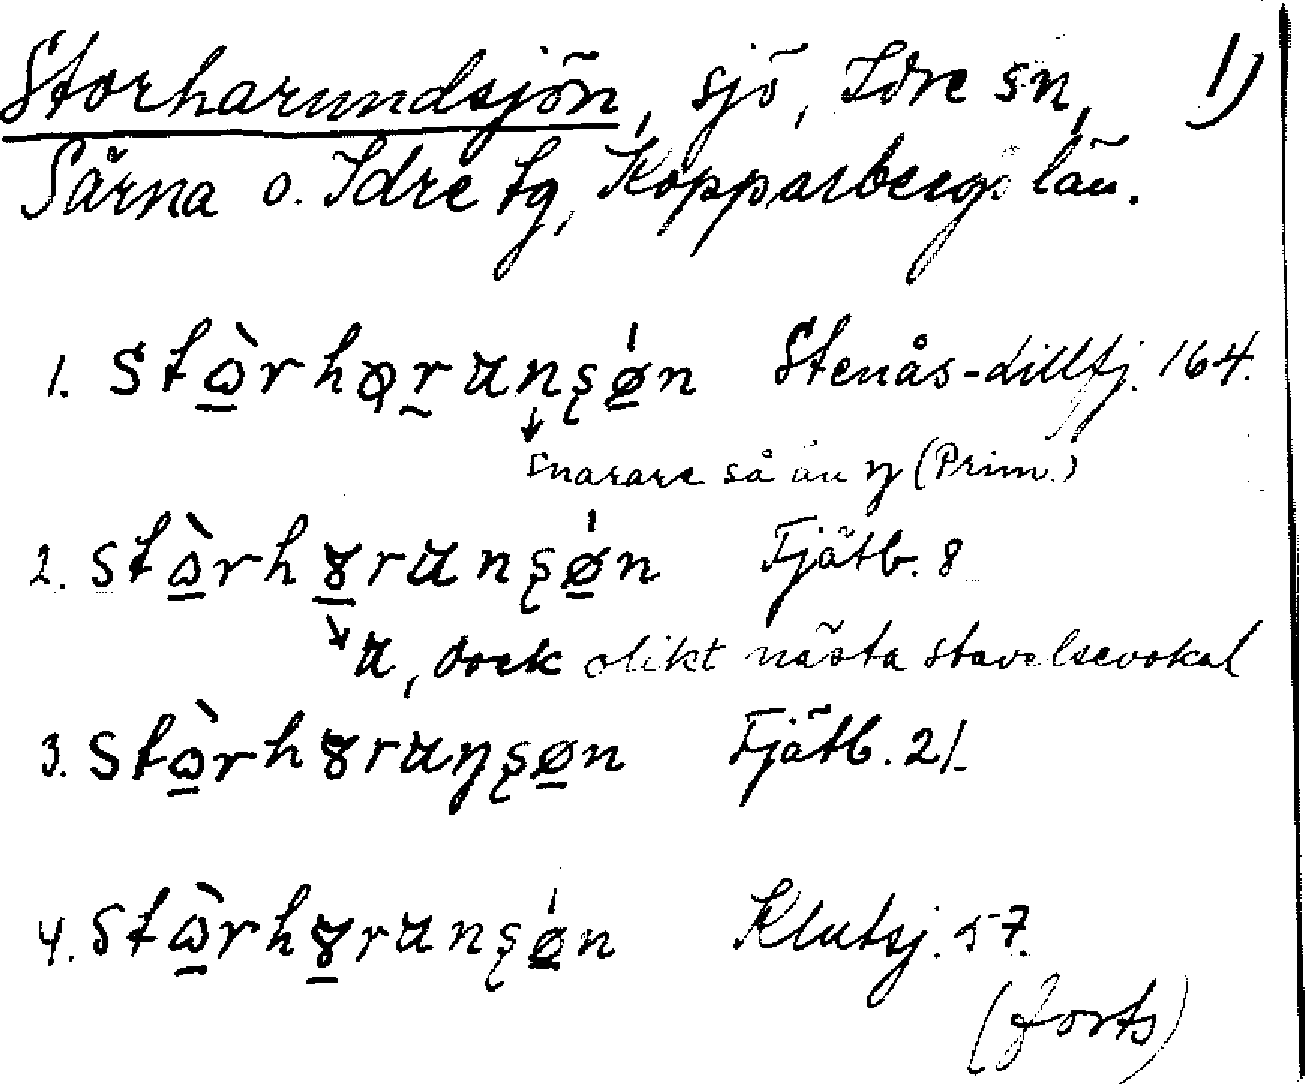 Storharundsjön, sjö, Idre sn, 1)
Särna o. Idre tg, Kopparbergs län.
1. stɷ̠̀rhꝍr̰ʉnʂǿ̠n Stenås-Lillfj. 164.
snarare så än ŋ (Prim.)
2. stɷ̠̀rhɤ̠rʉnʂǿ̠n Fjätb. 8
ʉ, dock olikt nästa stavelsevokal
3. stɷ̠̀rhɤrʉŋʂø̠n Fjätb. 21
4. stɷ̠̀rhɤ̠rʉnʂǿ̠n Klutsj. 57.
(forts)